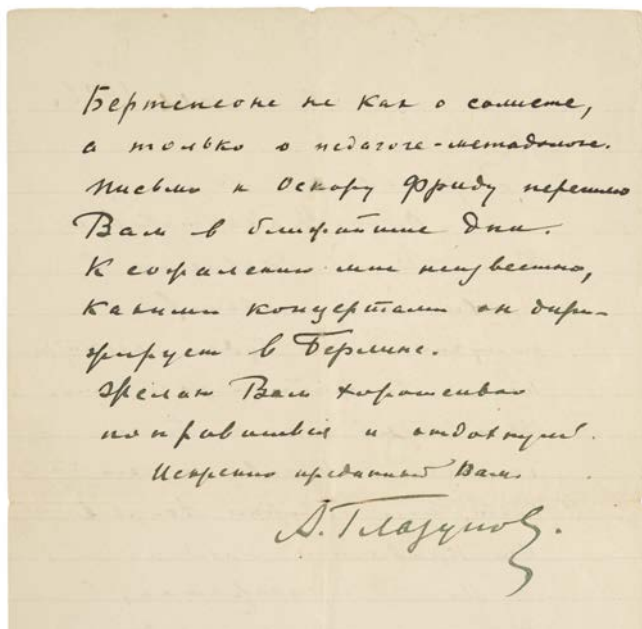 Бертенсоне не как о солисте,
а только о педагоге-методологе.
Письмо к Оскару Фриду перешлю
Вам в ближайшие дни.
К сожалению мне неизвестно,
какими концертами он дири-
жирует в Берлине.
Желаю Вам хорошенько
поправиться и отдохнуть.
Искренно преданный Вам
А. Глазунов.